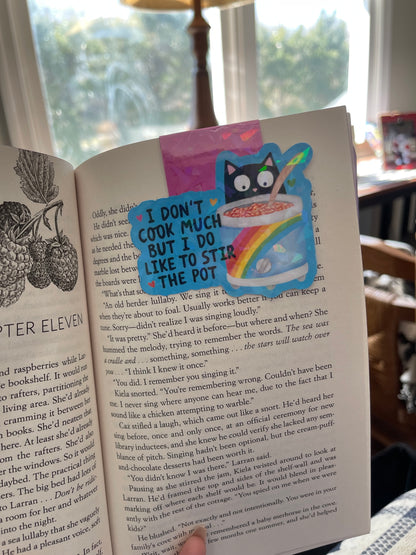 PTER ELEVEN
nd raspberries while Lar-
e bookshelf. It would run
to rafters, partitioning the
living area. She'd already
cramming it between her
n books. She'd nestle that
here. At least she'd already
rom the rafters. She'd also
er the windows. So it would
daybed. The practical thing
Larries. The bed had lots of
to Larran . . . Don't be ridic-
a room for her and whatever
into the night.
ea lullaby that the vaguely
d. He had a pleasant voice, soft
I DON'T
COOK MUCH
BUT I DO
LIKE TO STIR
THE POT
Oddly, she didn't
which was nice.
He didn't see
he needed the
degrees and the
marble lost between
the boards were
"What's that so
"An old herder lullaby. We sing it t
they're about to foal. Usually works better if you can keep a
tune. Sorry—didn't realize I was singing loudly."
"It was pretty." She'd heard it before—but where and when? She
hummed the melody, trying to remember the words. The sea was
a cradle and . . . something, something . . . the stars will watch over
you . . . "I think I knew it once."
"You did. I remember you singing it."
Kiela snorted. "You're remembering wrong. Couldn't have been
me. I never sing where anyone can hear me, due to the fact that I
sound like a chicken attempting to warble."
Caz stifled a laugh, which came out like a snort. He'd heard her
sing before, once and only once, at an official ceremony for new
library inductees, and she knew he could verify she lacked any sem-
blance of pitch. Singing hadn't been optional, but the cream-puff-
and-chocolate desserts had been worth it.
"You didn't know I was there," Larran said.
Pausing as she stirred the jam, Kiela twisted around to look at
Larran. He'd framed the top and sides of the shelf-wall and was
marking off where each shelf would be. It would blend pleas-
antly with the rest of the cottage. "You spied on me when we were
kids?"
He blushed. "Not exactly and not intentionally. You were in your
family's cove with
remembered a baby merhorse in the cove.
few months one summer, and she'd helped